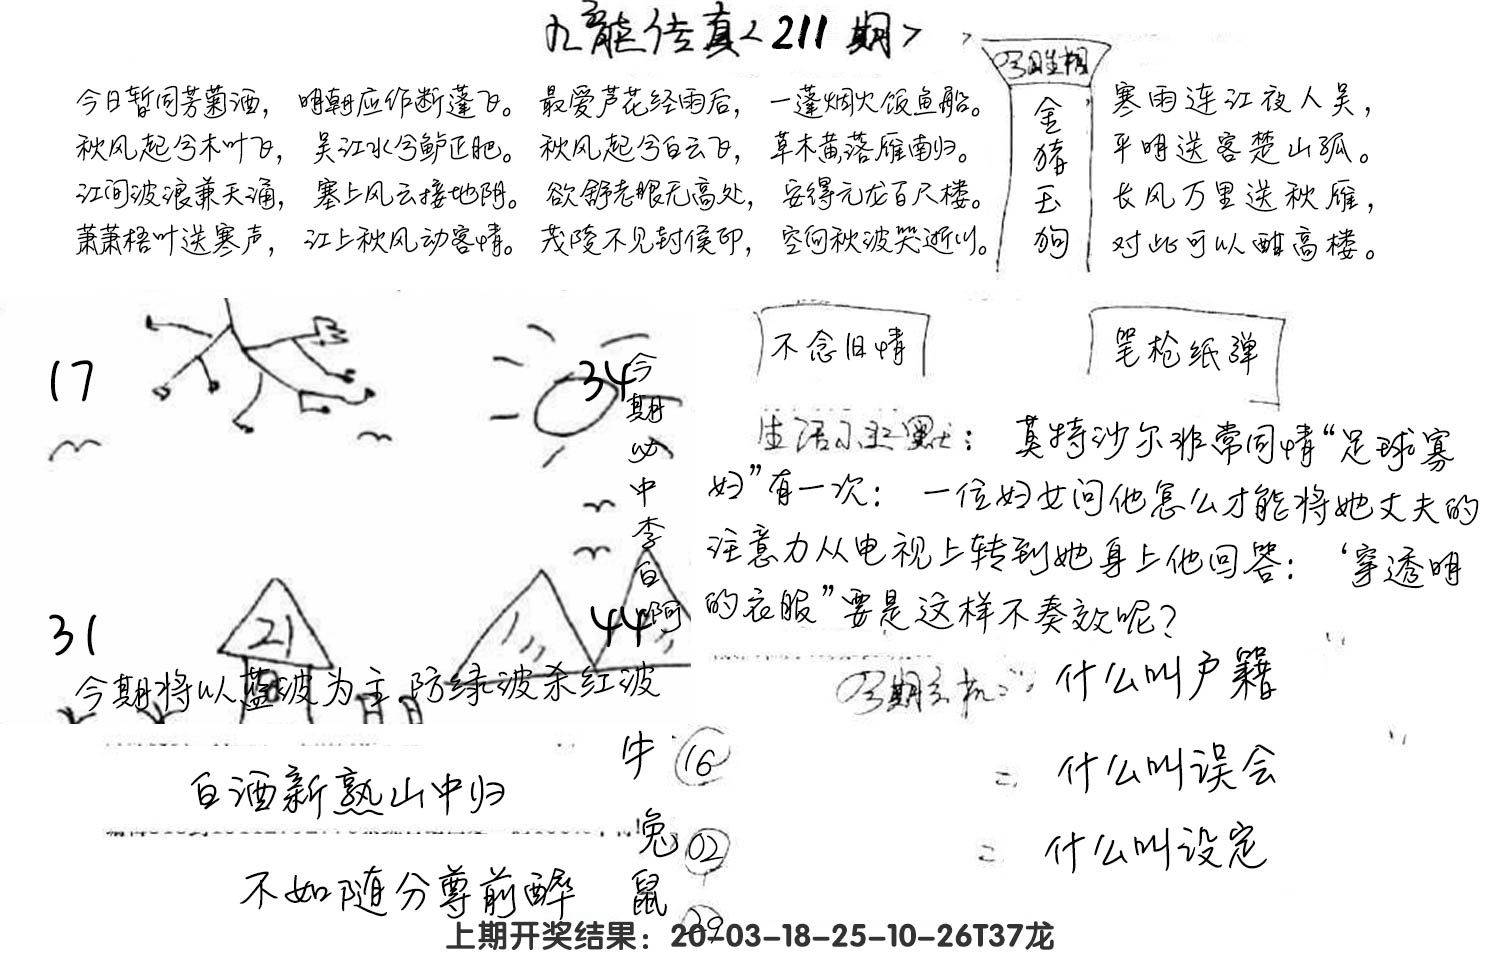 九龙传真<211期>
今日暂同芳菊酒，明朝应作断蓬飞。最爱芦花经雨后，一蓬烟火饭鱼船。
秋风起兮木叶飞，吴江水兮鲈正肥。秋风起兮白云飞，草木黄落雁南归。
江间波浪兼天涌，塞上风云接地阴。欲舒老眼无高处，安得元龙百尺楼。
萧萧梧叶送寒声，江上秋风动客情。茂陵不见封侯印，空向秋波哭逝川。
金猪玉狗
寒雨连江夜入吴，
平明送客楚山孤。
长风万里送秋雁，
对此可以酣高楼。
17
34
31
21
44
今期必中李白阿
今期将以蓝波为主防绿波杀红波
不念旧情
笔枪纸弹
生活小幽默：莫特沙尔非常同情“足球寡
妇”有一次：一位妇女问他怎么才能将她丈夫的
注意力从电视上转到她身上他回答：‘穿透明
的衣服”要是这样不奏效呢？
什么叫户籍
二 什么叫误会
二 什么叫设定
白酒新熟山中归
不如随分尊前醉
牛 16
兔 02
鼠 29
上期开奖结果：20-03-18-25-10-26T37龙